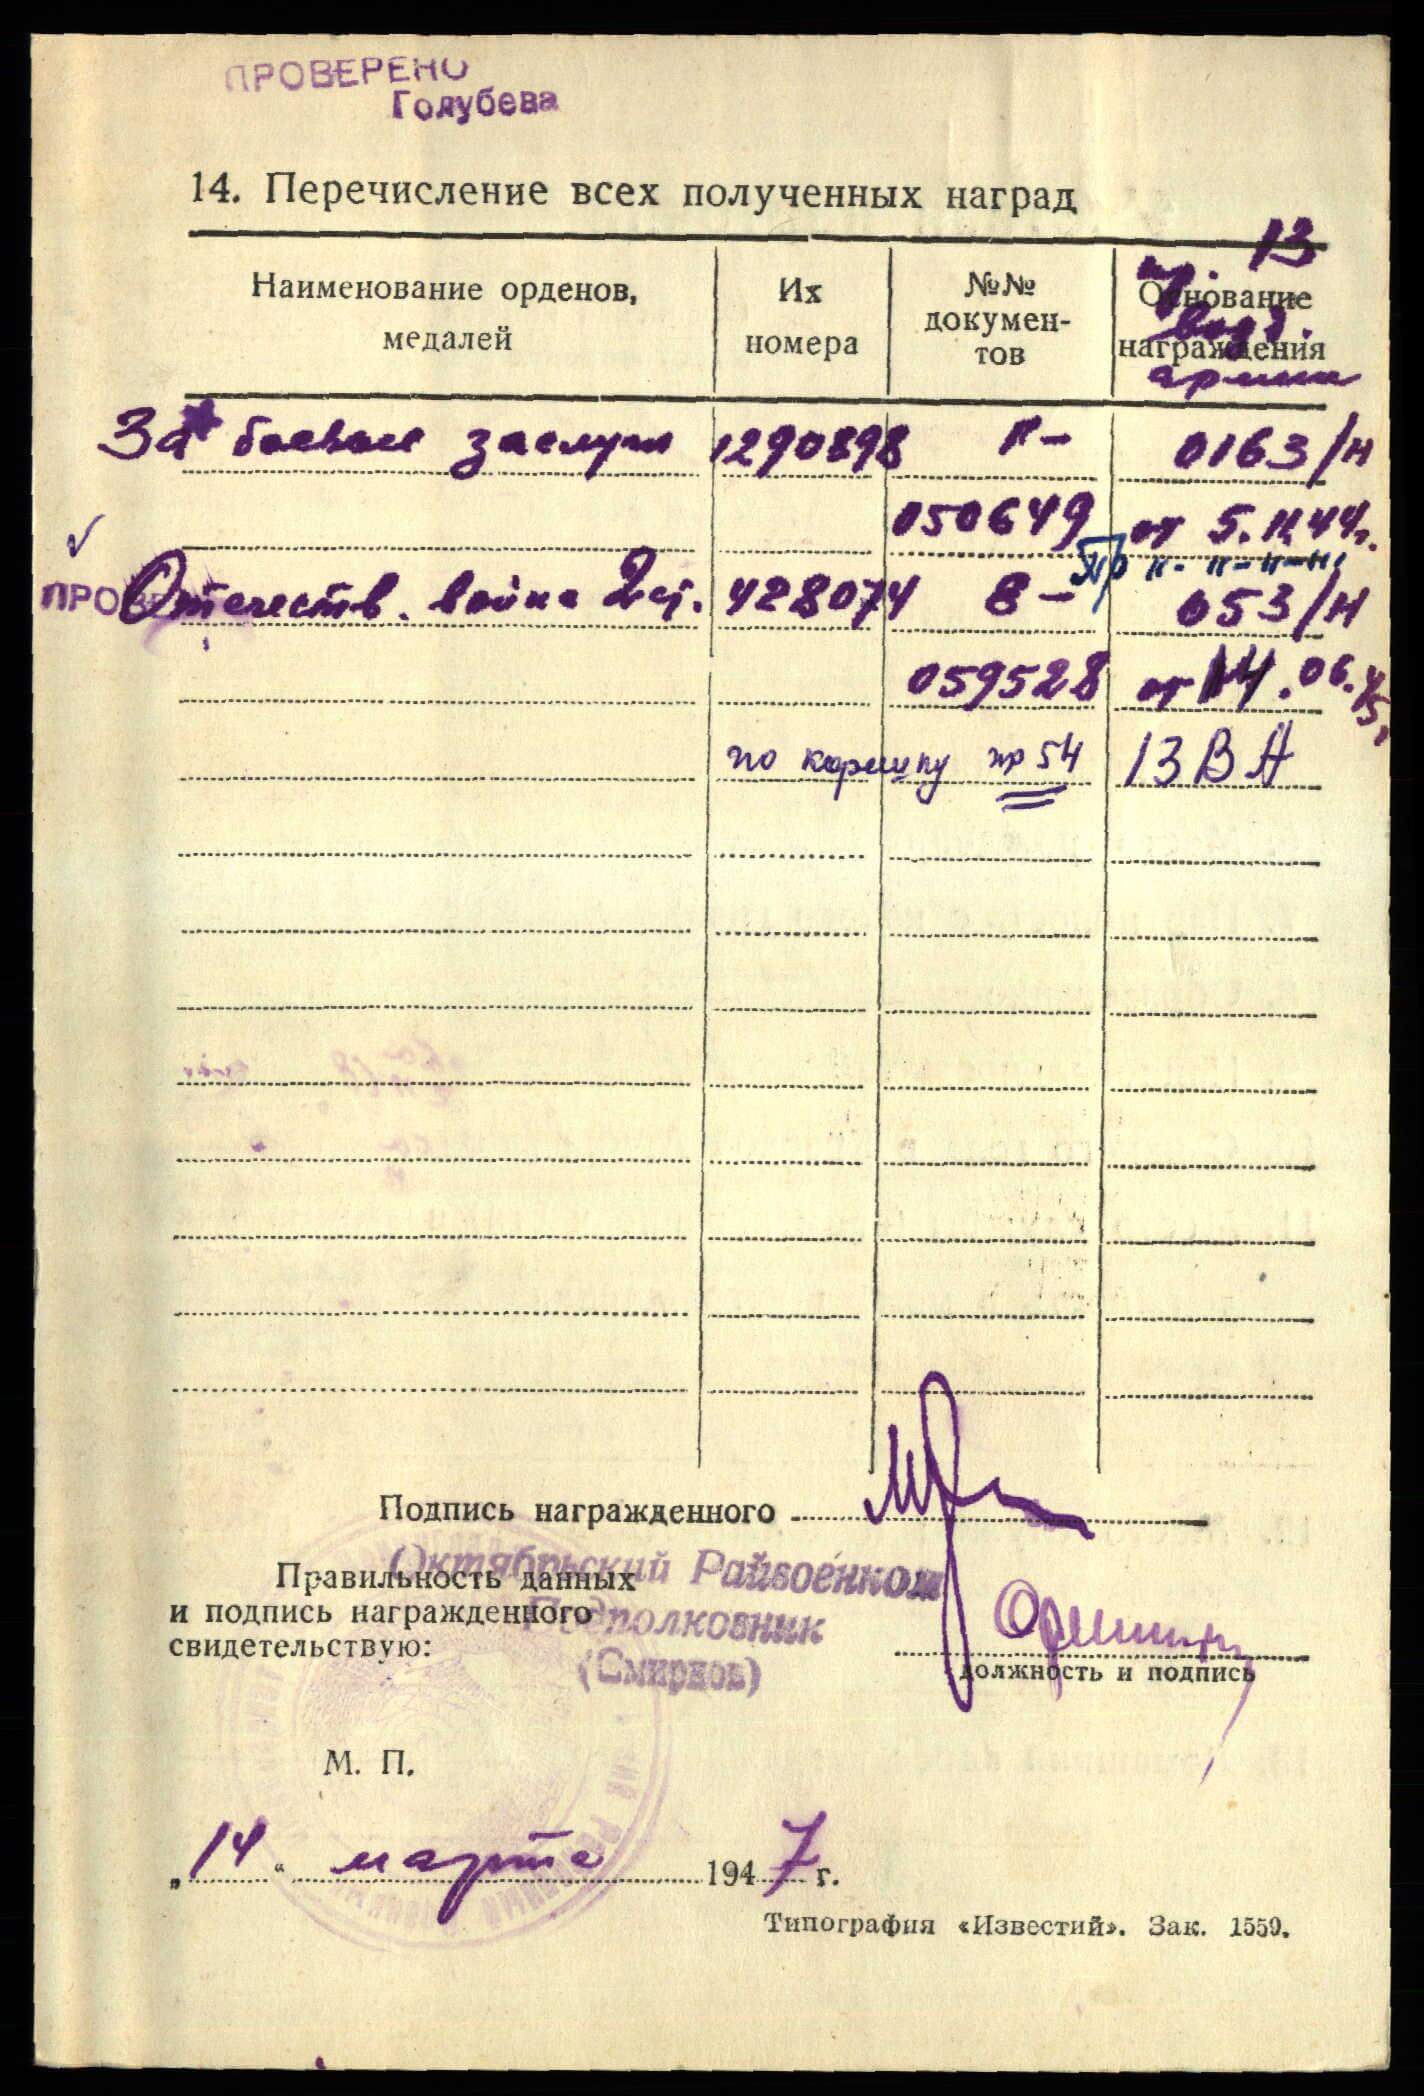 ПРОВЕРЕНО
Голубева
14. Перечисление всех полученных наград
Наименование орденов, медалей
Их номера
№№ документов
Основание награждения
пр. 13
возд.
армии
За боевые заслуги 1290898 К- 0163/н
050649 от 5.11.44г.
Отечеств. война 2 ст. 428074 В- 053/н
059528 от 14.06.45
по корешку пр 54 13 ВА
Подпись награжденного
Октябрьский Райвоенком
Подполковник
(Смирнов)
Правильность данных
и подпись награжденного
свидетельствую:
должность и подпись
М. П.
„14“ марта 1947 г.
Типография «Известий». Зак. 1559.